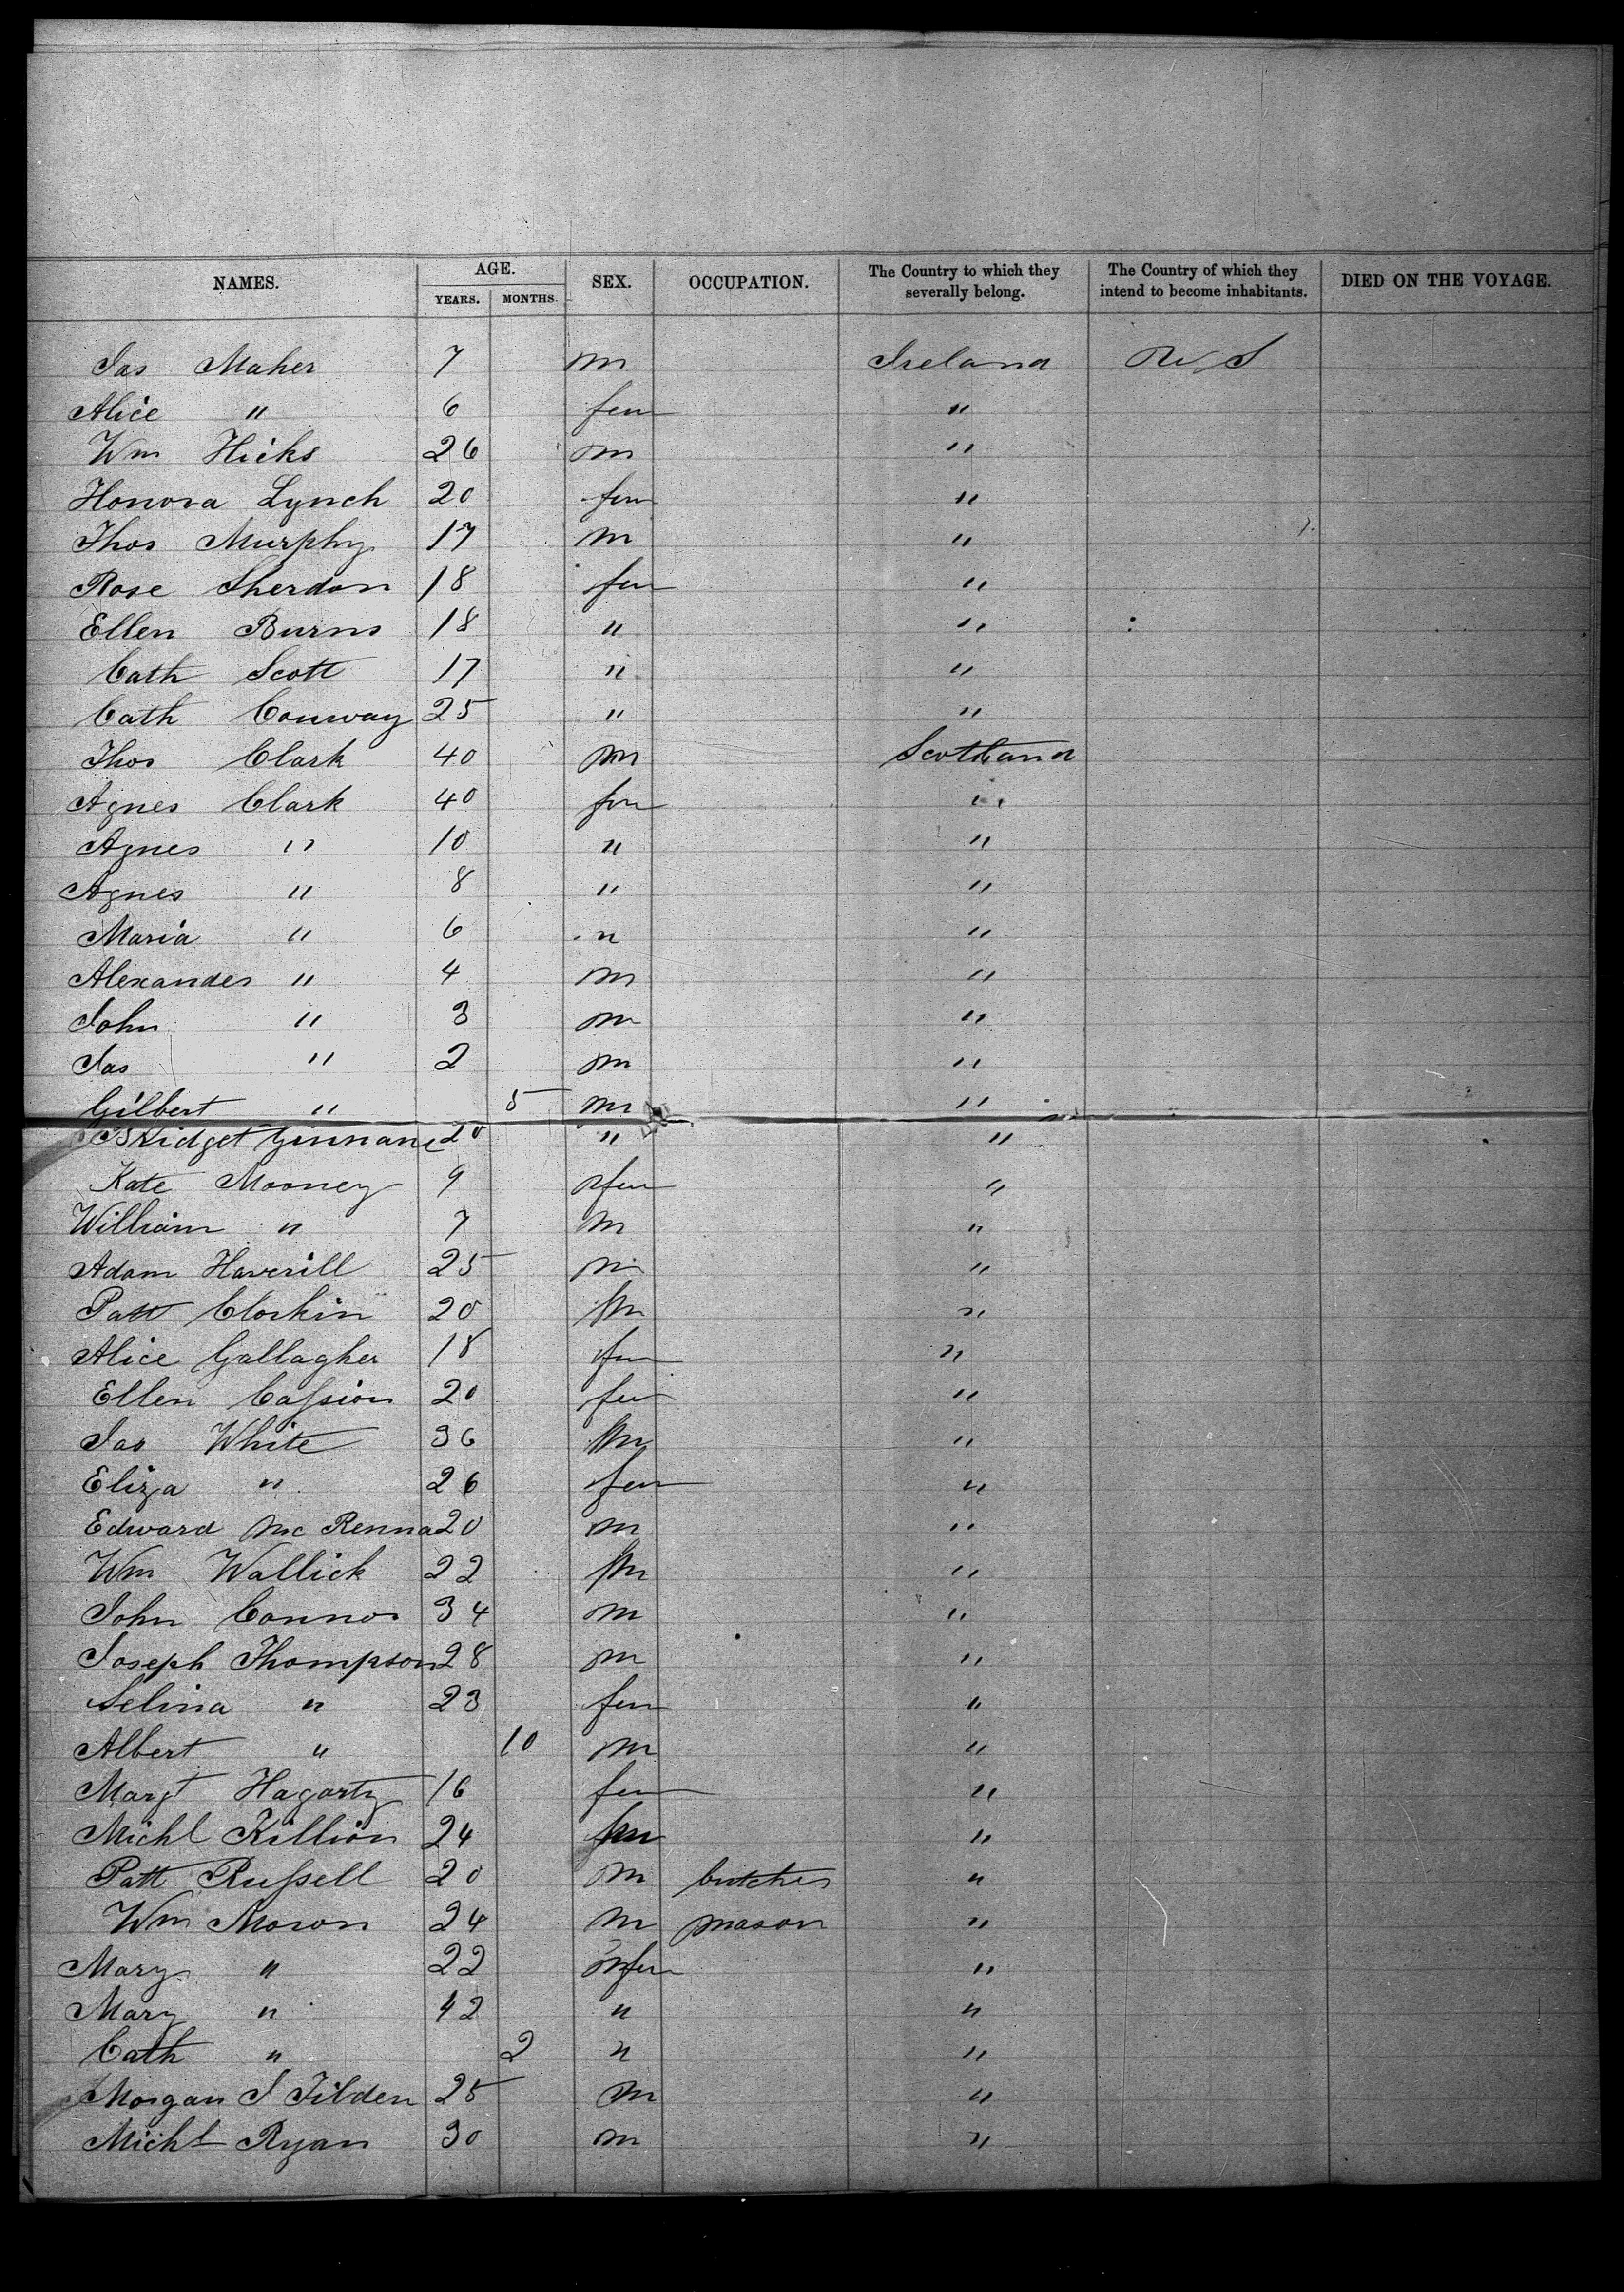 NAMES. AGE. SEX. OCCUPATION. The Country to which they severally belong. The Country of which they intend to become inhabitants. DIED ON THE VOYAGE.
YEARS. MONTHS.
Jas Maher 7 m Ireland U S
Alice " 6 fem "
Wm Hicks 26 m "
Honora Lynch 20 fem "
Thos Murphy 17 m "
Rose Sherdon 18 fem "
Ellen Burns 18 " "
Cath Scott 17 " "
Cath Conway 25 " "
Thos Clark 40 m Scotland
Agnes Clark 40 fem "
Agnes " 10 " "
Agnes " 8 " "
Maria " 6 " "
Alexander " 4 m "
John " 3 m "
Jas " 2 m "
Gilbert " 5 m "
Bridget Ginnane 20 " "
Kate Mooney 9 fem "
William " 7 m "
Adam Haverill 25 m "
Patt Clorkin 20 m "
Alice Gallagher 18 fem "
Ellen Cassion 20 fem "
Jas White 36 m "
Eliza " 26 fem "
Edward Mc Renna 20 m "
Wm Wallick 22 m "
John Connor 34 m "
Joseph Thompson 28 m "
Selina " 23 fem "
Albert " 10 m "
Margt Hagarty 16 fem "
Michl Killion 24 m "
Patt Russell 20 m butcher "
Wm Moron 24 m mason "
Mary " 22 fem "
Mary " 42 " "
Cath " 2 " "
Morgan J Tilden 25 m "
Michl Ryan 30 m "